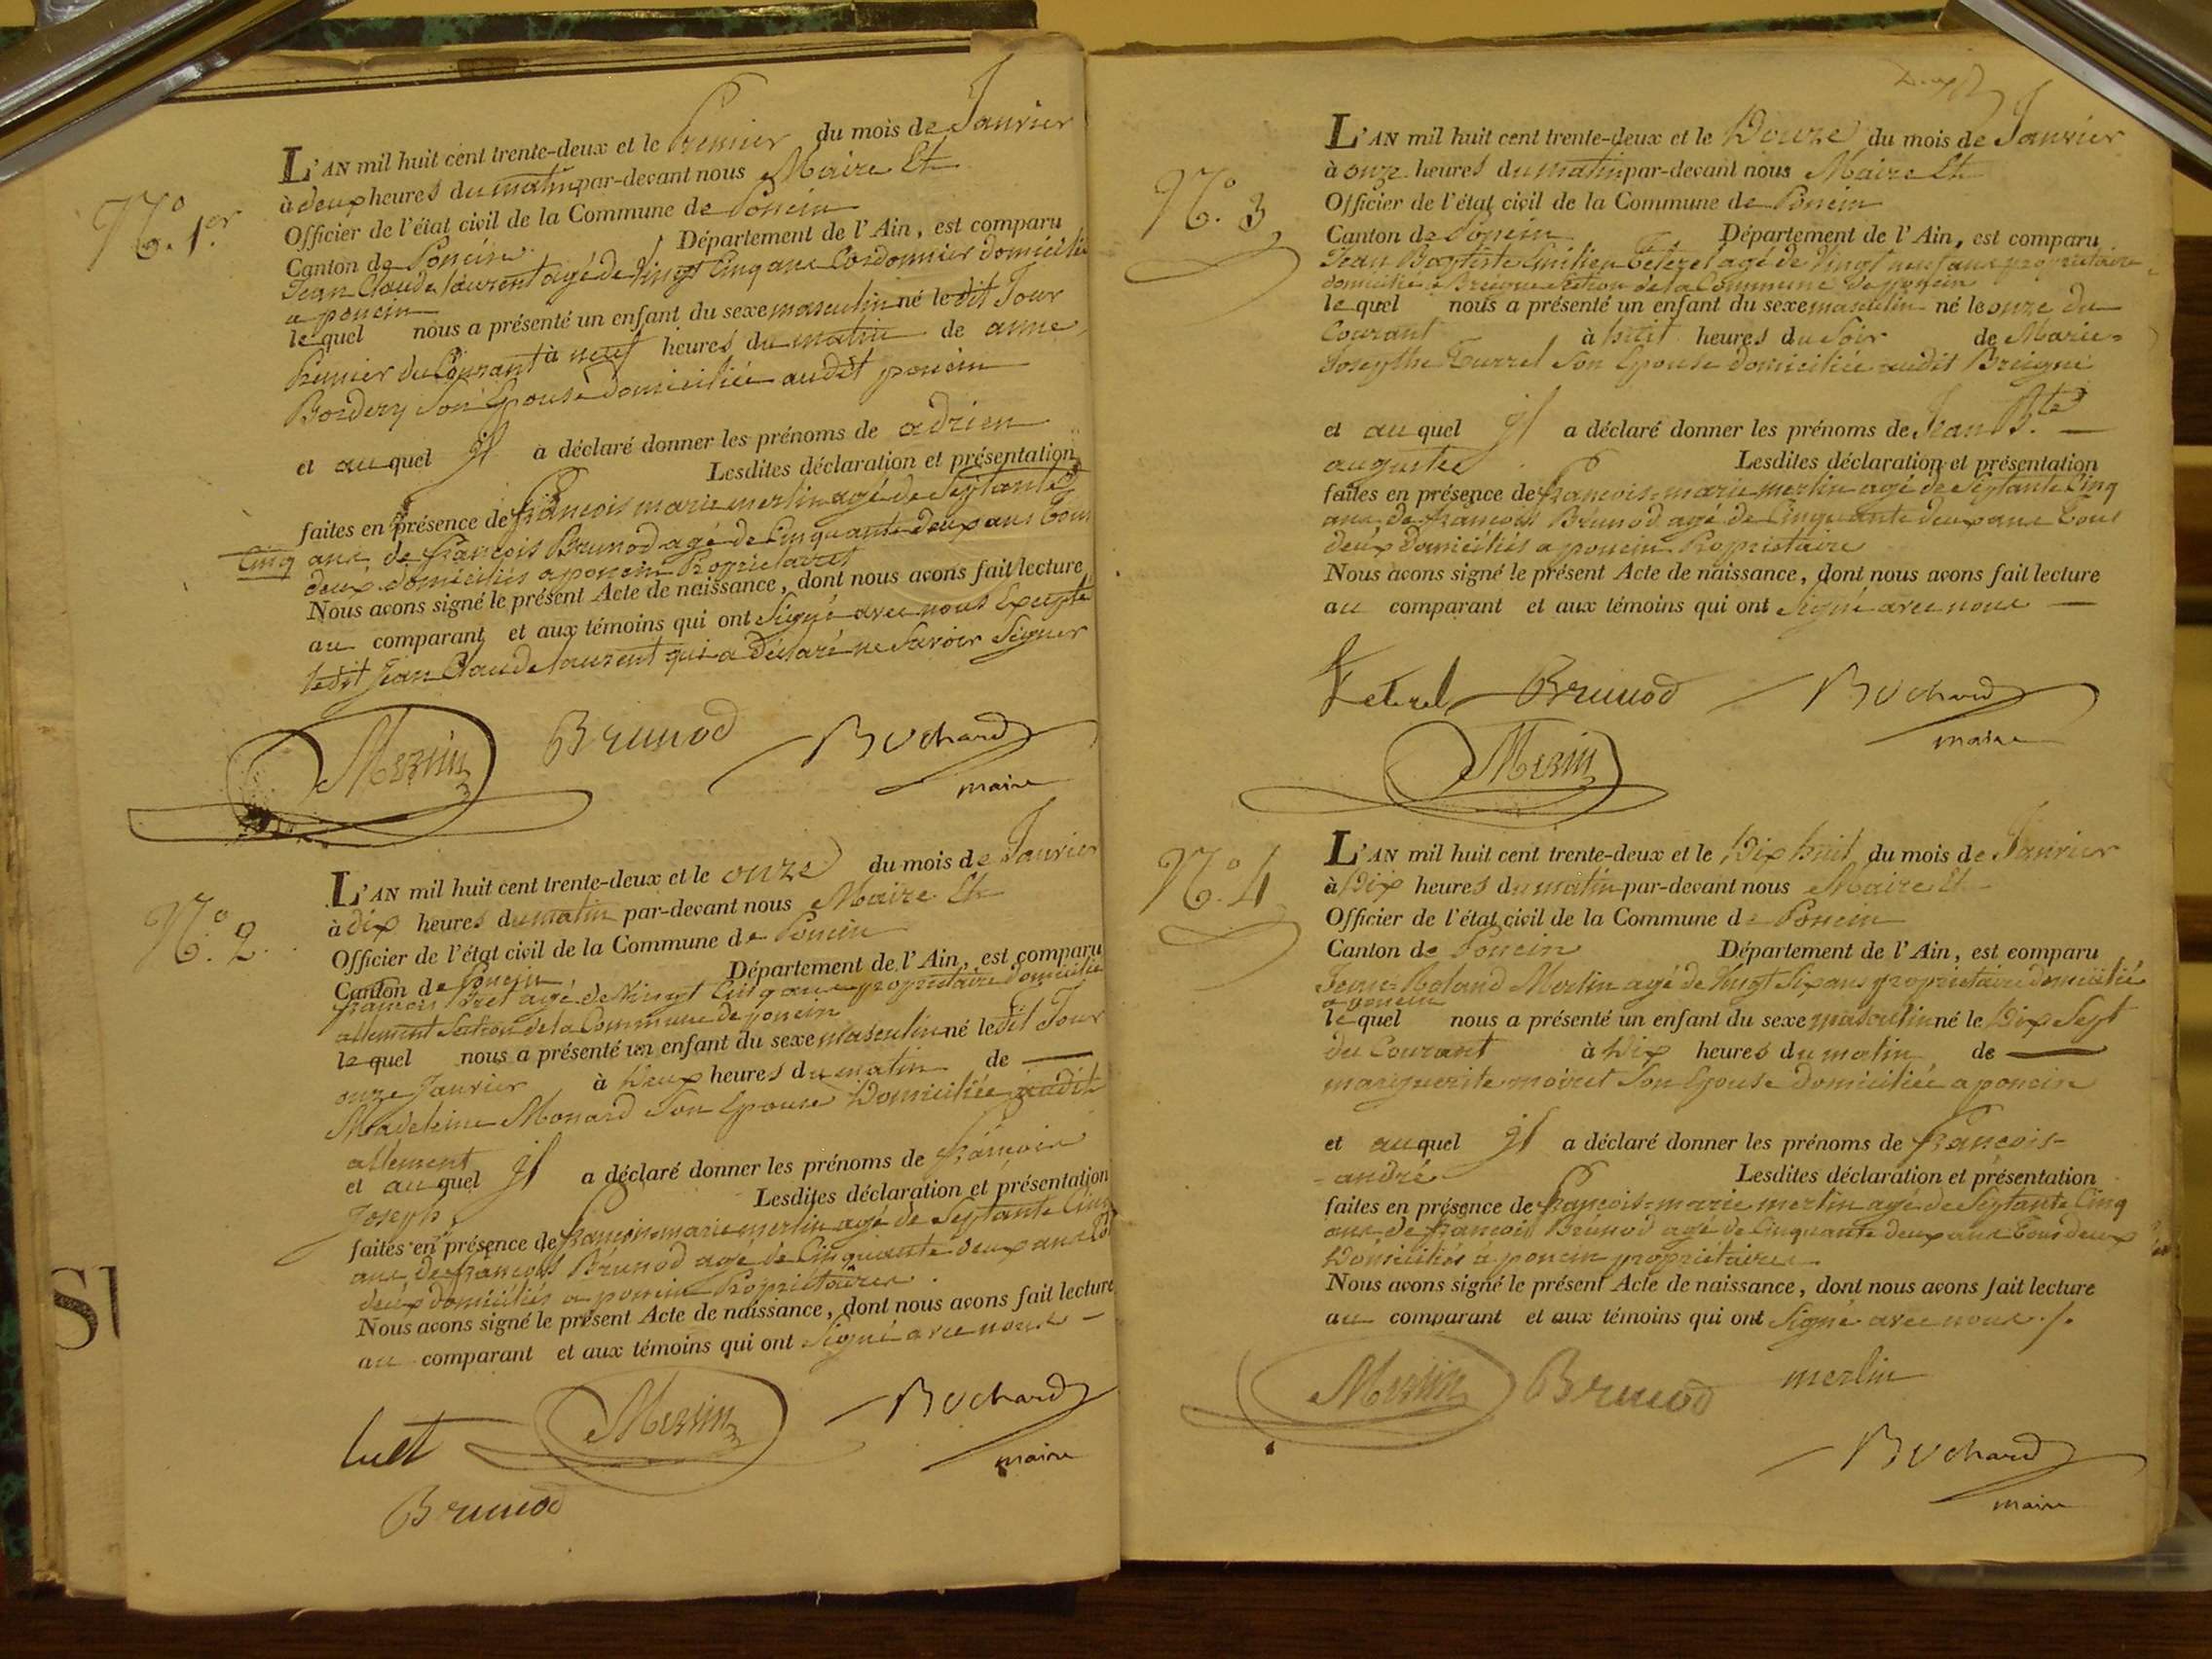 N.o 1.er
L'AN mil huit cent trente-deux et le Premier du mois de Janvier
à deux heures du matin par-devant nous Maire Et
Officier de l'état civil de la Commune de Poncin
Canton de Poncin Département de l'Ain, est comparu
Jean Claude laurent agé de vingt Cinq ans Cordonnier domicilié
a poncin
lequel nous a présenté un enfant du sexe masculin né ledit Jour
Premier du Courant à neuf heures du matin de anne
Bordery Son Epouse domiciliée audit poncin
et auquel il a déclaré donner les prénoms de adrien
Lesdites déclaration et présentation
faites en présence de françois marie merlin agé de Septante
Cinq ans, de françois Brunod agé de Cinquante deux ans tous
deux domiciliés a poncin Propriétaires
Nous avons signé le présent Acte de naissance, dont nous avons fait lecture
au comparant et aux témoins qui ont Signé avec nous Excepté
ledit Jean Claude laurent qui a déclaré ne Savoir Signer
Merlin Brunod Bochard
maire
N.o 2.
L'AN mil huit cent trente-deux et le onze du mois de Janvier
à dix heures du matin par-devant nous Maire Et
Officier de l'état civil de la Commune de Poncin
Canton de Poncin Département de l'Ain, est comparu
françois agé de Vingt Cinq ans propriétaire domicilié
allement Section de la Commune de poncin
lequel nous a présenté un enfant du sexe masculin né ledit Jour
onze Janvier à Deux heures du matin de
Madeleine Monard Son Epouse Domiciliée audit
allement
et auquel il a déclaré donner les prénoms de françois
Joseph Lesdites déclaration et présentation
faites en présence de françois marie merlin agé de Septante Cinq
ans, de françois Brunod agé de Cinquante deux ans
deux domiciliés a poncin Propriétaires
Nous avons signé le présent Acte de naissance, dont nous avons fait lecture
au comparant et aux témoins qui ont Signé avec nous
Merlin Bochard
maire
Brunod
N.o 3
L'AN mil huit cent trente-deux et le Douze du mois de Janvier
à onze heures du matin par-devant nous Maire Et
Officier de l'état civil de la Commune de Poncin
Canton de Poncin Département de l'Ain, est comparu
Jean Baptiste Emilien agé de Vingt neuf ans propriétaire
domicilié a Section de la Commune de poncin
lequel nous a présenté un enfant du sexe masculin né le onze du
Courant à huit heures du Soir de Marie=
Josephte Turrel Son Epouse domiciliée audit
et auquel il a déclaré donner les prénoms de Jean B.te
auguste Lesdites déclaration et présentation
faites en présence de françois=marie merlin agé de Septante Cinq
ans, de françois Brunod agé de Cinquante deux ans tous
deux domiciliés a poncin Propriétaire
Nous avons signé le présent Acte de naissance, dont nous avons fait lecture
au comparant et aux témoins qui ont Signé avec nous
Brunod Bochard
maire
Merlin
N.o 4
L'AN mil huit cent trente-deux et le Dix huit du mois de Janvier
à Dix heures du matin par-devant nous Maire Et
Officier de l'état civil de la Commune de Poncin
Canton de Poncin Département de l'Ain, est comparu
Jean=Roland Merlin agé de Vingt Six ans propriétaire domicilié
a poncin
lequel nous a présenté un enfant du sexe masculin né le Dix Sept
du Courant à Dix heures du matin de
marguerite moiret Son Epouse domiciliée a poncin
et auquel il a déclaré donner les prénoms de françois-
-andré Lesdites déclaration et présentation
faites en présence de françois=marie merlin agé de Septante Cinq
ans, de françois Brunod agé de Cinquante deux ans tous deux
Domiciliés a poncin propriétaires
Nous avons signé le présent Acte de naissance, dont nous avons fait lecture
au comparant et aux témoins qui ont Signé avec nous ./.
Merlin Brunod merlin
Bochard
maire